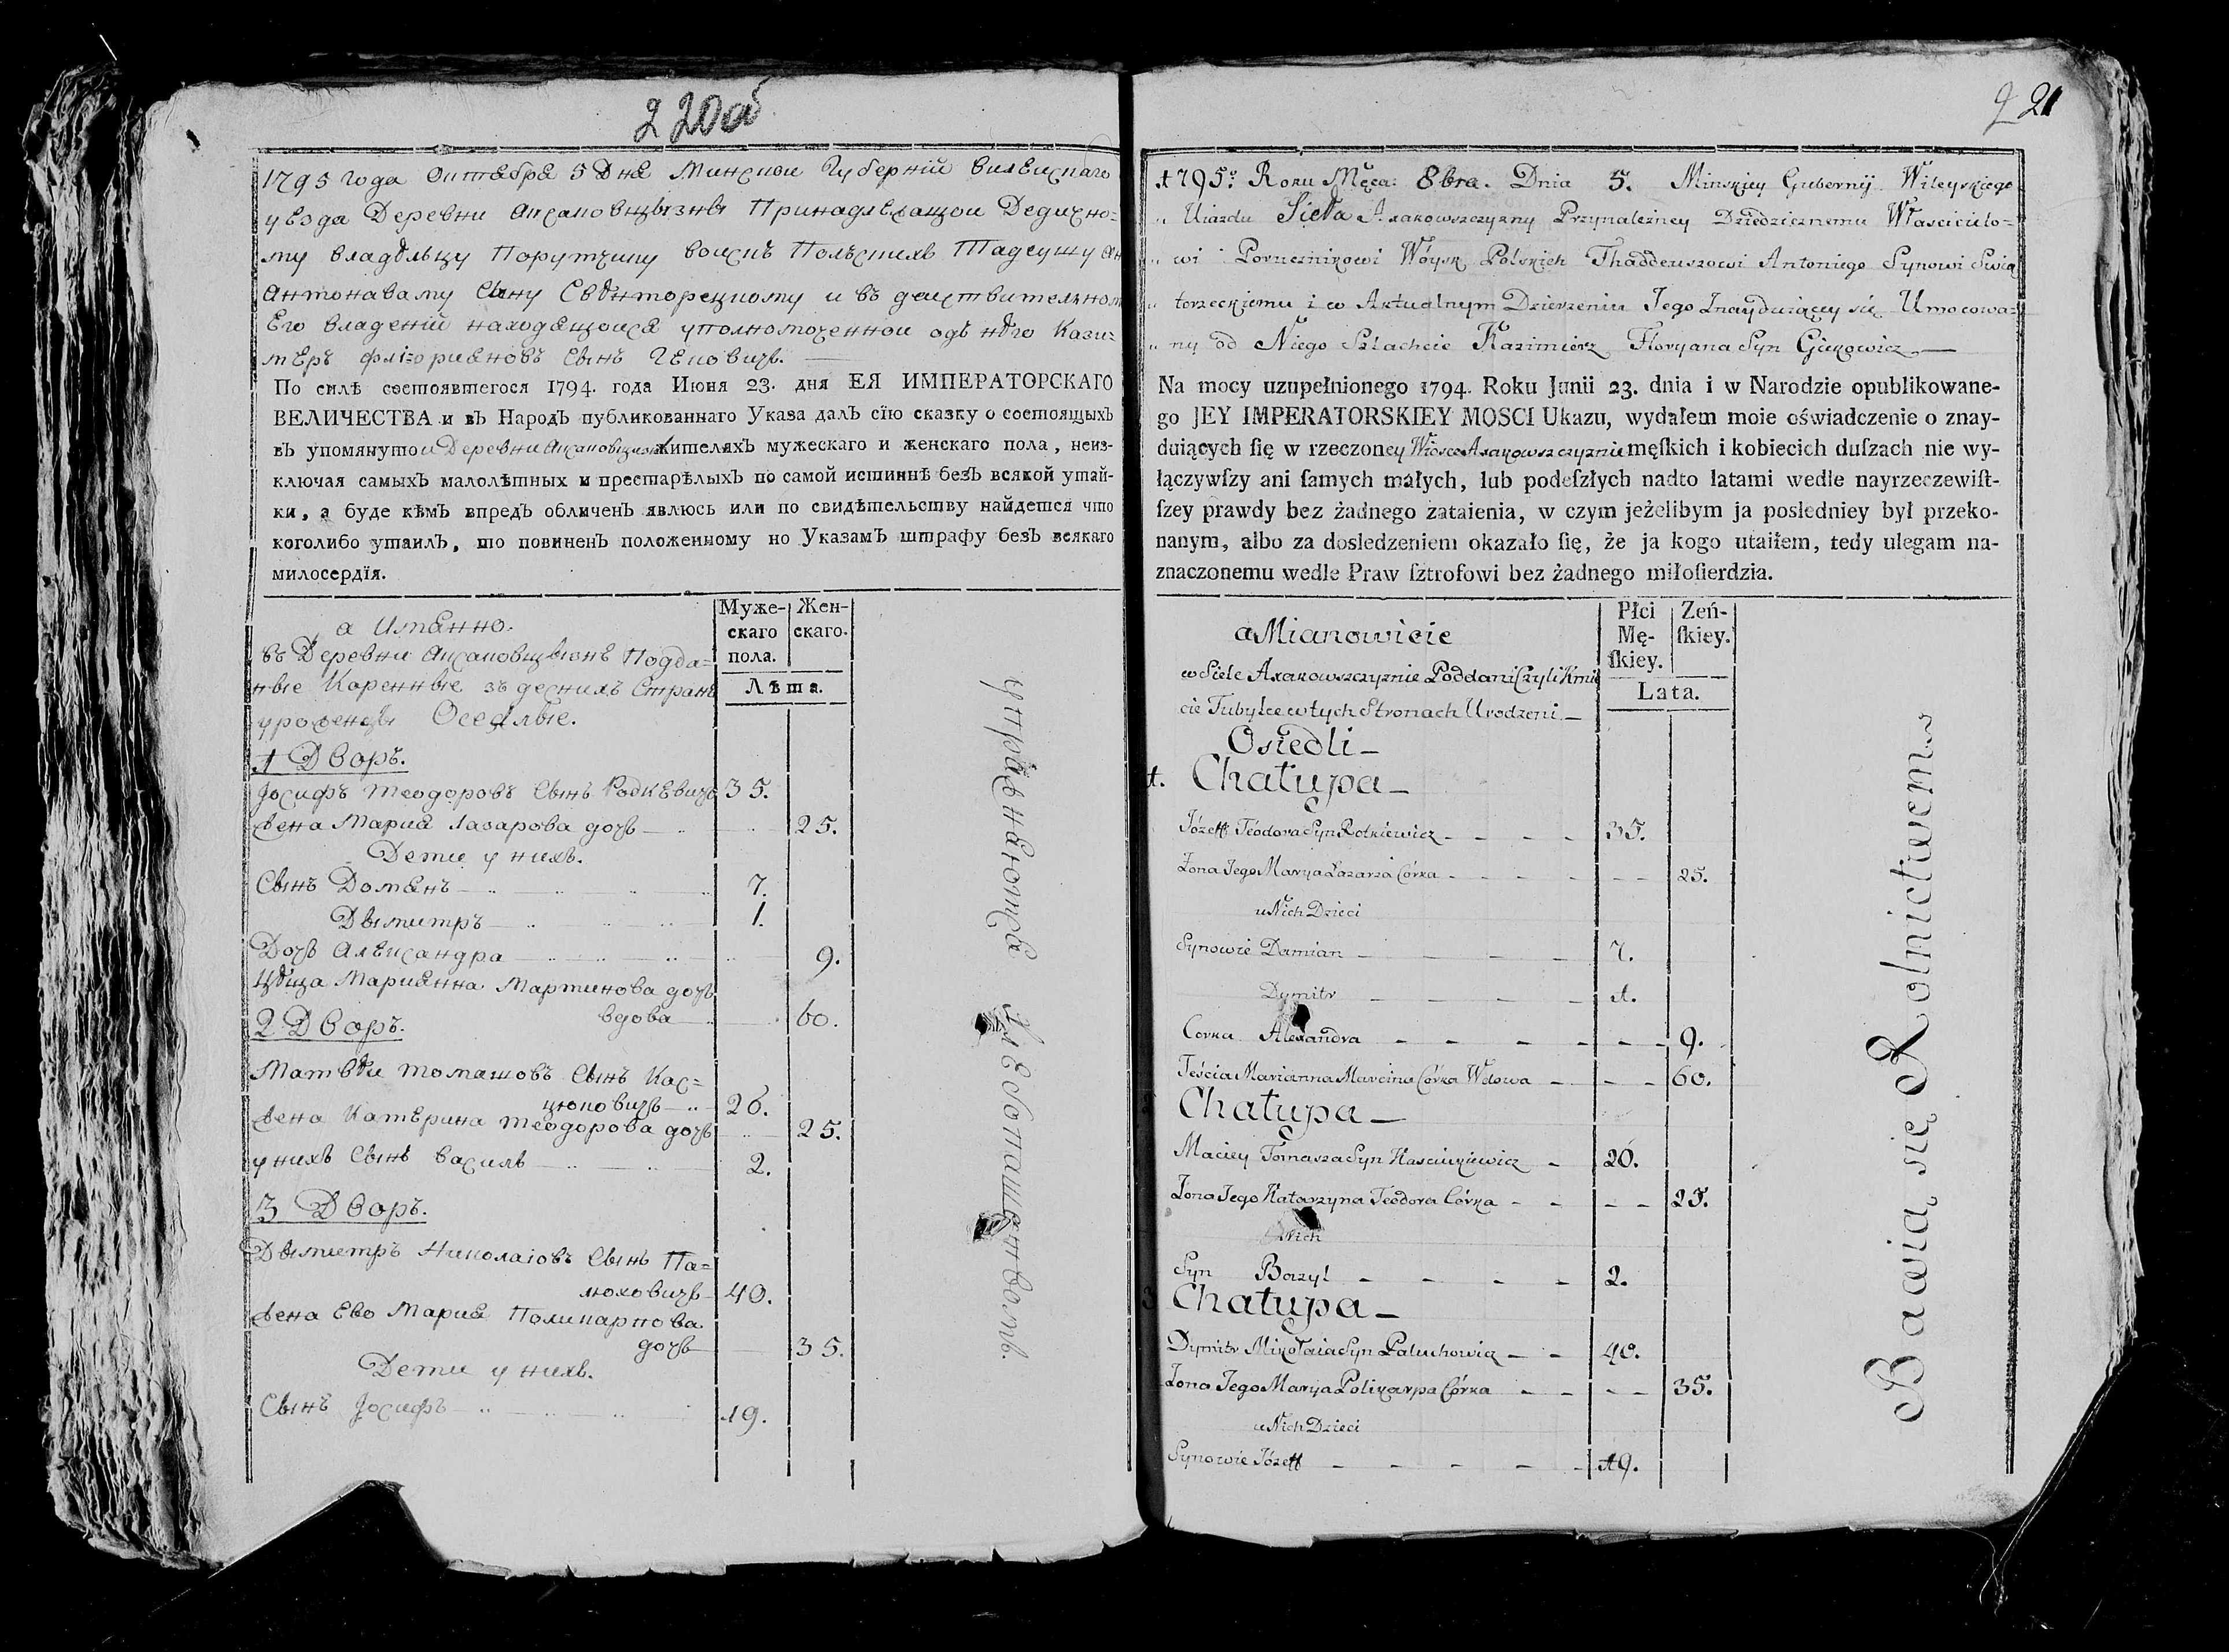 220об
1795 года Октября 5 дня Минскои Губерніи Вилеискаго
уезда Деревни Аксаковщызны Принадлежащои Дедично-
му владѣльцу Порутчику воискъ Польскихъ Тадеушу
Антонавому Сыну Свѣнторецкому и въ деиствительном
Его владеніи находящоися уполномоченнои одъ нѣго Кази-
меръ Флiориановъ Сынъ Гецовичъ.
По силѣ состоявшегося 1794. года Июня 23. дня ЕЯ ИМПЕРАТОРСКАГО
ВЕЛИЧЕСТВА и въ Народъ публикованнаго Указа далъ сїю сказку о состоящыхъ
въ упомянутои Деревни Аксаковщизнѣ жителяхъ мужескаго и женскаго пола, неиз-
ключая самыхъ малолѣтныхъ и престарѣлыхъ по самой истиннѣ безъ всякой утай-
ки, а буде кѣмъ впредъ обличенъ явлюсь или по свидѣтельству найдется что
коголибо утаилъ, то повиненъ положенному по Указамъ штрафу безъ всякаго
милосердїя.
Муже-скаго пола. Жен-скаго.
Лѣта.
а Имянно.
въ Деревни Аксаковщызнѣ Подда-
ные Коренные въ десних Стран
уроженцы Оседлые.
1 Дворъ.
Іосифъ Теодоровъ Сынъ Родкевичъ 35.
Жена Мария Лазарова дочь 25.
Дети у нихъ.
Сынъ Домянъ 7.
Дымитръ 1.
Дочь Александра 9.
Цѣща Марианна Мартинова дочь
вдова 60.
2 Дворъ.
Матвѣи Томашовъ Сынъ Кас-
цюковичъ 26.
Жена Катерина Теодорова дочь 25.
у нихъ Сынъ Василь 2.
3 Дворъ.
Дымитръ Николаіовъ Сынъ Па-
люховичъ 40.
Жена Ево Мария Поликарпова
дочь 35.
Дети у нихъ.
Сынъ Іосифъ 19.
упражняются Хлебопашенствомъ.
221
1795º Roku Męca: 8bra. Dnia 5. Minskiey Gubernij Wileyskiego
Uiazdu Sieła Axakowszczyzny Przynależney Dziedzicznemu Włascicielo-
wi Porucznikowi Wóysk Polskich Thaddeuszowi Antoniego Synowi Swią
torzeckiemu i w Aktualnym Dzierżeniu Jego Znayduiącey się Umocowa-
ny od Niego Szlachcic Kazimierz Floryana Syn Gicwicz
Na mocy uzupełnionego 1794. Roku Junii 23. dnia i w Narodzie opublikowane-
go JEY IMPERATORSKIEY MOSCI Ukazu, wydałem moie oświadczenie o znay-
duiących ſię w rzeczoney Wiosce Axakowszczyznie męſkich i kobiecich duſzach nie wy-
łączywſzy ani ſamych małych, lub podeſzłych nadto latami wedle nayrzeczewiſt-
ſzey prawdy bez żadnego zataienia, w czym jeżelibym ja posledniey był przeko-
nanym, albo za dosledzeniem okazało ſię, że ja kogo utaiłem, tedy ulegam na-
znaczonemu wedle Praw ſztrofowi bez żadnego miłoſierdzia.
Płci Mę-ſkiey. Zeń-ſkiey.
Lata.
a Mianowicie
w Siele Axakowszczyznie Poddani Czyli Kmie
cie Tubylce w tych Stronach Urodzeni
Osiedli
1. Chałupa
Józeff Teodora Syn Rotkiewicz 35.
Żona Jego Marya Łazarza Córka 25.
u Nich Dzieci
Synowie Damian 7.
Dymitr 1.
Corka Alexandra 9.
Teścia Marianna Marcina Córka Wdowa 60.
Chałupa
Maciey Tomasza Syn Kasciukiewicz 26.
Żona Jego Katarzyna Teodora Córka 25.
Nich
Syn Bazyl 2.
3 Chałupa
Dymitr Mikołaia Syn Paluchowicz 40.
Żona Jego Marya Polikarpa Córka 35.
u Nich Dzieci
Synowie Józeff 19.
Bawią się Rolnictwem